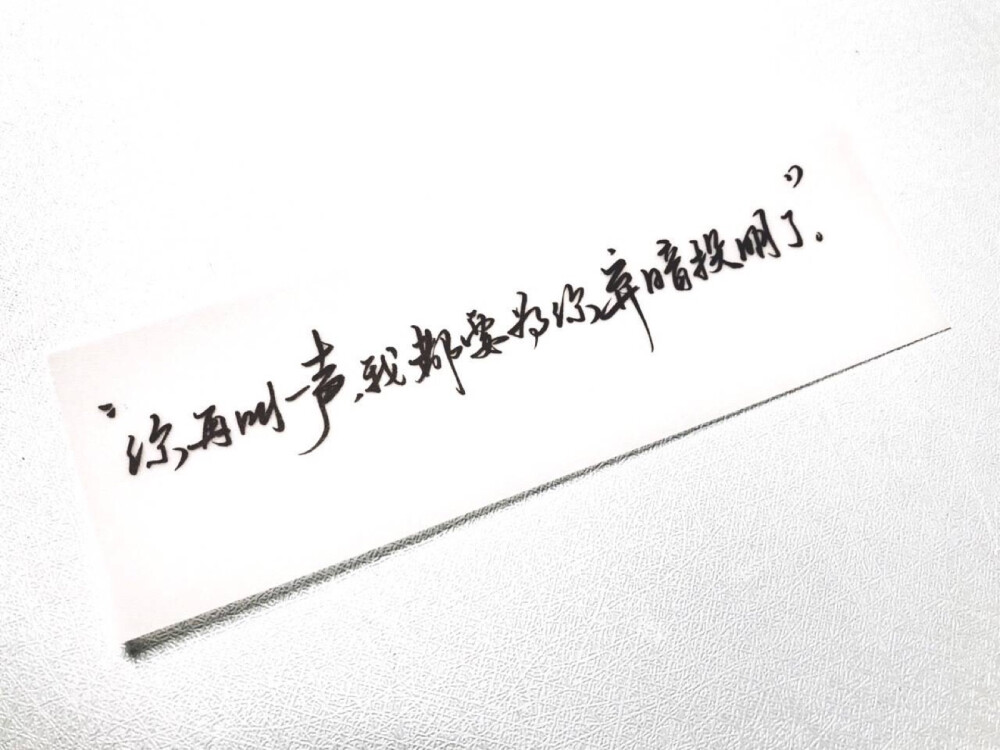 “你再叫一声,我都要为你弃暗投明了.”